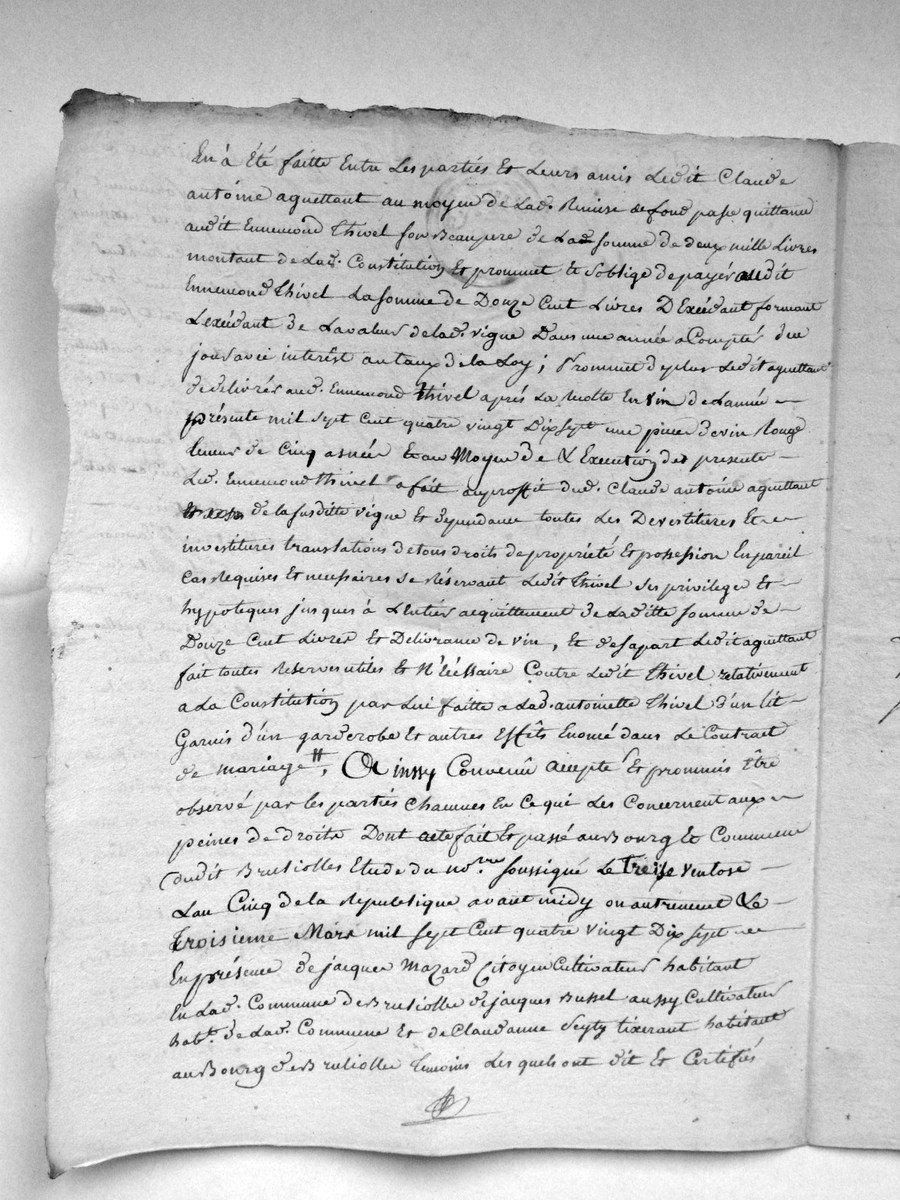 En à été faitte Entre Les parties Et Leurs amis Ledit Claude
antoine aguettant au moyen de Lad. Remise de fond passe quittance
audit Ennemond thivel son Beaupere de Lad somme de deux mille Livres
montant de Lad. Constitution Et prommet Et s'oblige de payer audit
Ennemond thivel La somme de Douze Cent Livres D'Exédant formant
L'exédant de La valeur de lad. vigne Dans une année a Compter du
jour avec interêt au taux de la Loy; Prommet de plus Ledit aguettant
de delivrer aud. Ennemond thivel aprés La Recolte En vin de L'année
présente mil sept Cent quatre vingt Dix sept une piece de vin Rouge
teneur de Cinq asnée Et au Moyen de L'Execution des presente
Led. Ennemond thivel a fait au proffit dud. Claude antoine aguettant
de la susditte vigne Et dependance toutes Les Devestitures Et
investitures translations de tous droits de propriété Et possession En pareil
Cas Requises Et necessaires se Réservant Ledit thivel ses privilege Et
hypoteques jusques à L'Entier acquittement de La ditte somme de
Douze Cent Livres Et Délivrance de vin, Et de sa part Ledit aguettant
fait toutes Reserves utiles Et N'écéssaire Contre Ledit thivel relativement
a La Constitution par Lui faitte a Lad. antoinette thivel d'un Lit
Garnis d'un garderobe Et autres Effêts Enoncé dans Le Contract
de mariage, Ainssy Convenu accepté Et prommis Être
observé par les parties Chacunes En Ce qui Les Concernent aux
peines de droits Dont acte fait Et passé au Bourg Et Commune
dudit Brusiolles Etude du no.re soussigné Le treize Ventose
L'an Cinq de la Republique avant midy ou autrement Le
Troisieme Mars mil sept Cent quatre vingt Dix sept
En présence de jacques Mazard Citoyen Cultivateur habitant
En Lad. Commune de Brusiolle de jacques Bussel aussy Cultivateur
hab.t de Lad. Commune Et de Claud anne tixerant habitant
au Bourg de Brusiolle temoins Les quels ont dit Et Certifiés